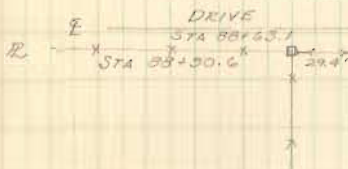 DRIVE
℄
STA 88+63.1
ꝒL
STA 88+50.6
29.4